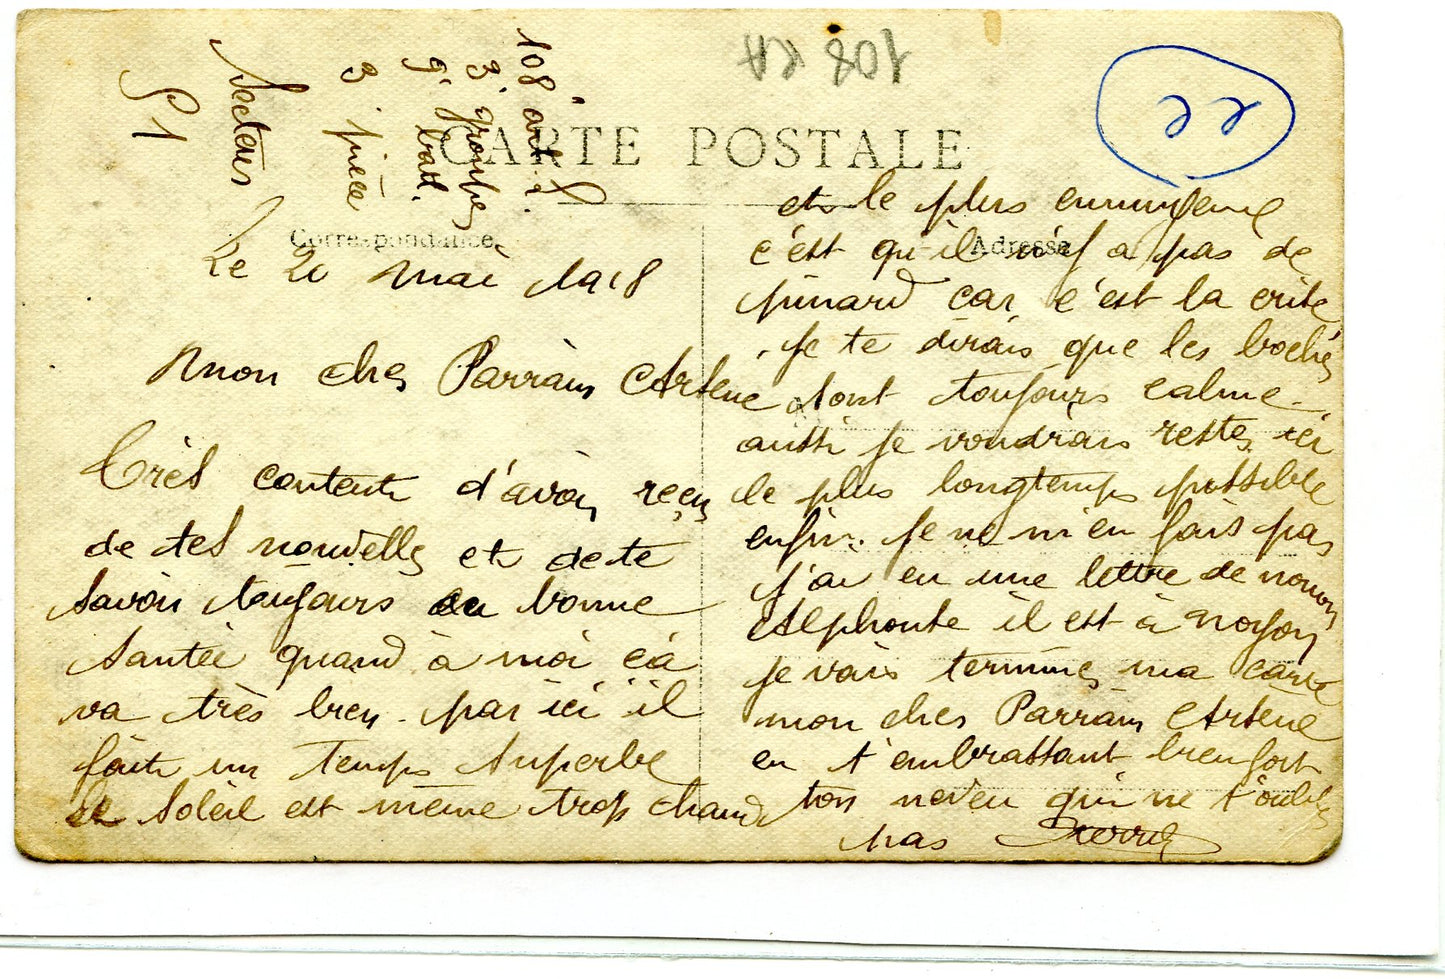 108 KA
CARTE POSTALE
Correspondance
Adresse
108e art. L.
3e groupe
9e batt.
3e pièce
Secteur
S1
Le 20 mai 1918
Mon cher Parrain Arsène
Très contente d'avoir reçu
de tes nouvelles et de te
savoir toujours en bonne
santée quand à moi ça
va très bien. par ici il
faite un temps superbe
le soleil est même trop chaud
et le plus ennuyeuse
c'est qu'il n'y a pas de
pinard car c'est la crise
je te dirais que les boches
sont toujours calme.
aussi je voudrais rester ici
le plus longtemps possible
enfin. je ne m'en fais pas
j'ai eu une lettre de nonon
Alphonse il est à Noyon
je vais terminer ma carte
mon cher Parrain Arsène
en t'embrassant bien fort
ton neveu qui ne t'oublie
pas Pierre